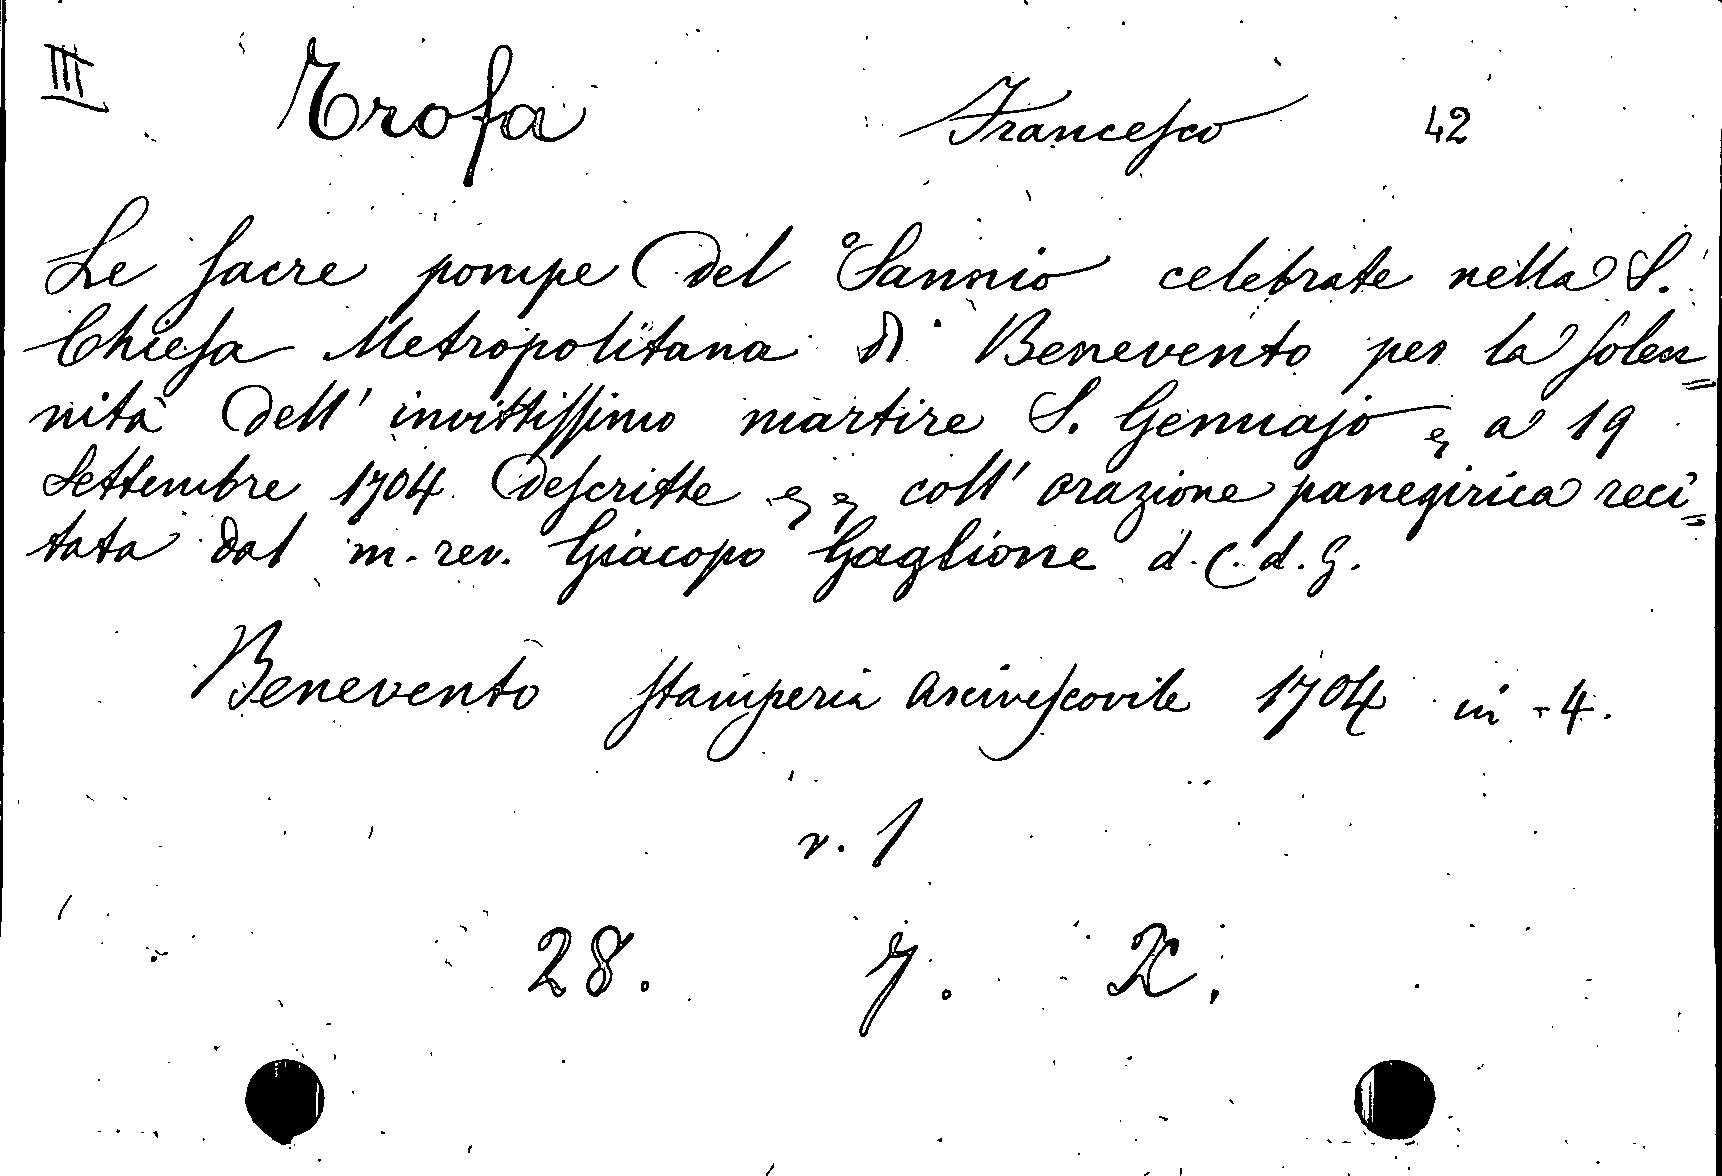 III Trosa Francesco 42
Le sacre pompe del Sannio celebrate nella S.
Chiesa Metropolitana di Benevento per la solen=
nità dell' invittissimo martire S. Gennajo a 19
Settembre 1704 descritte coll' orazione panegirica reci=
tata dal m. rev. Giacopo Gaglione d. C. d. G.
Benevento stamperia arcivescovile 1704 in -4.
v. 1
28. 7. X.